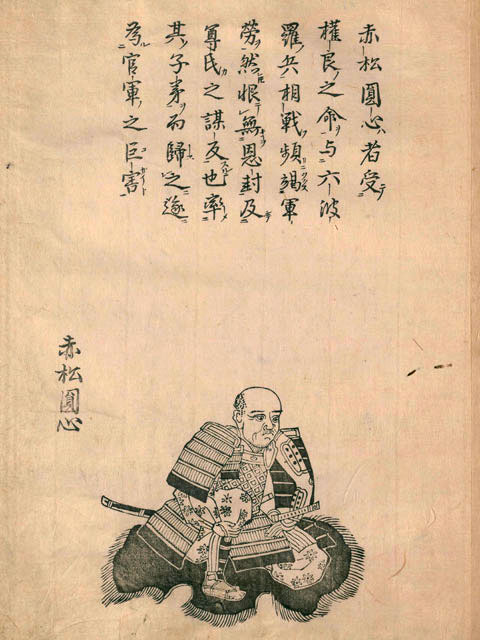 赤松圓心者受
權良之命与六波
羅兵相戰頻竭軍
勞然恨無恩封及
尊氏之謀反也率
其子弟而歸之遂
為官軍之巨害
赤松圓心